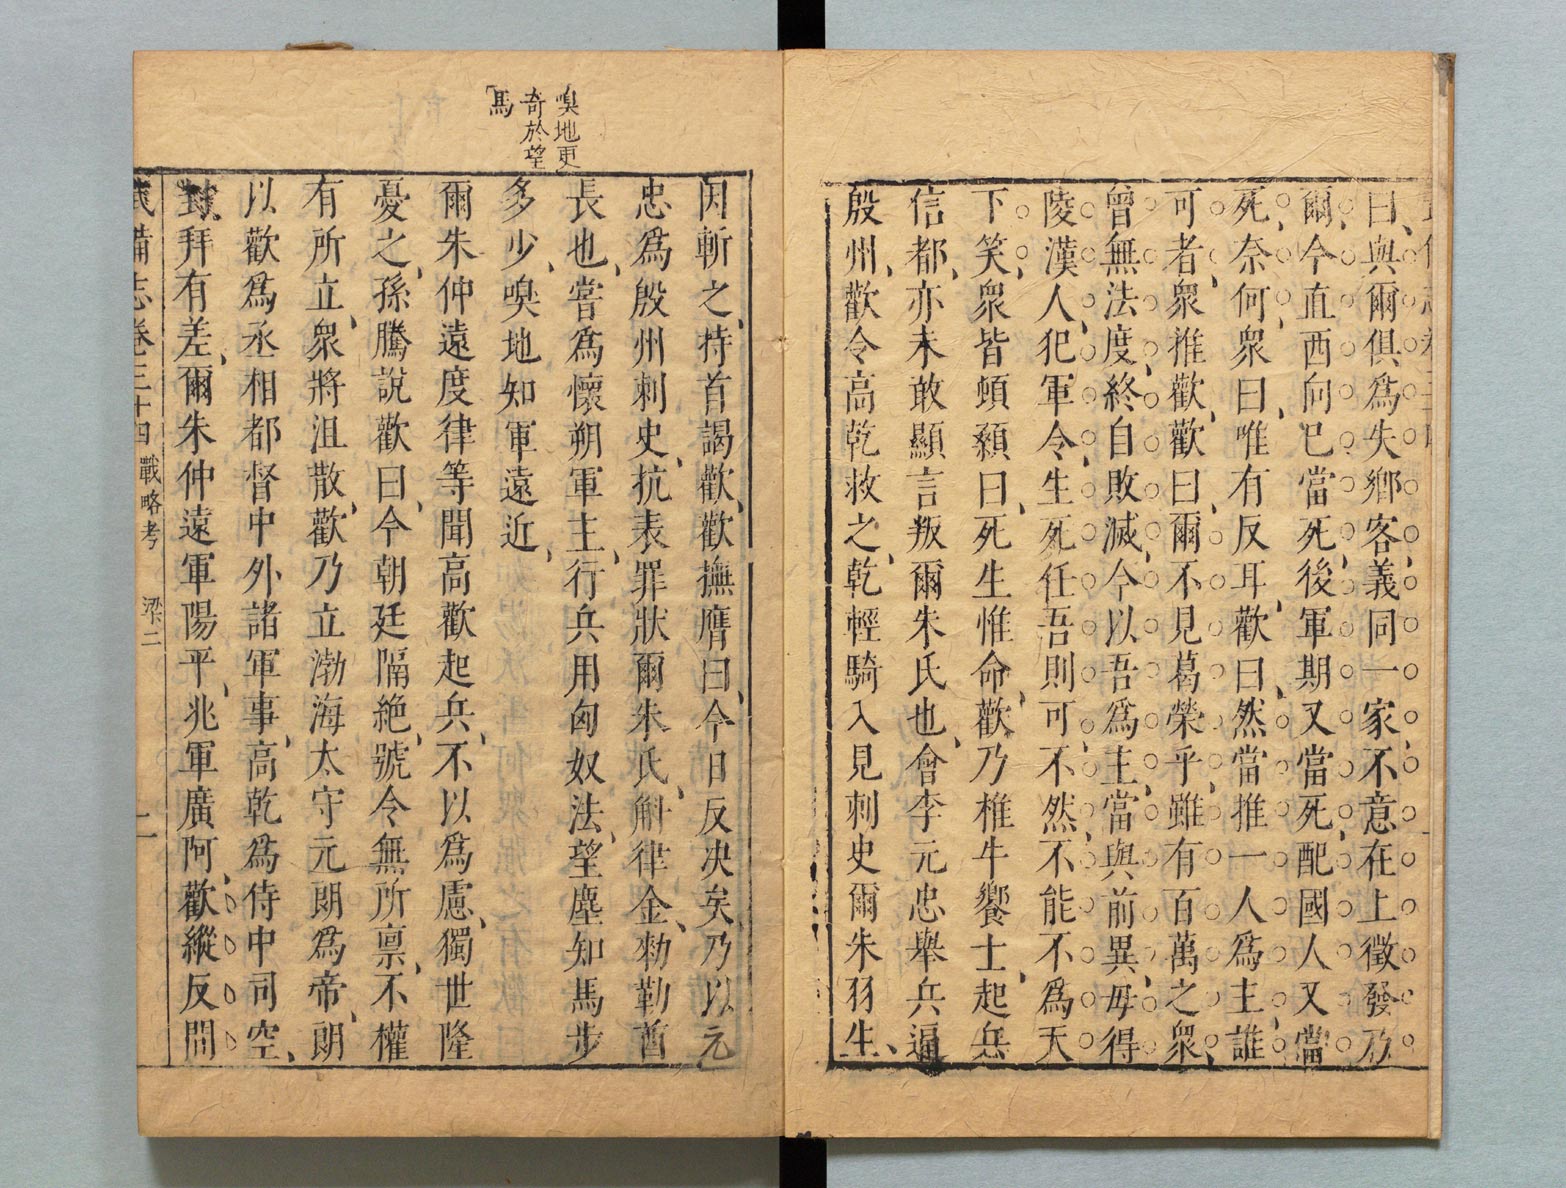 曰與爾俱爲失鄉客義同一家不意在上徵發乃
爾今直西向已當死後軍期又當死配國人又當
死奈何衆曰唯有反耳歡曰然當推一人爲主誰
可者衆推歡歡曰爾不見葛榮乎雖有百萬之衆
曾無法度終自敗滅今以吾爲主當與前異毋得
陵漢人犯軍令生死任吾則可不然不能不爲天
下笑衆皆頓顙曰死生惟命歡乃椎牛饗士起兵
信都亦未敢顯言叛爾朱氏也會李元忠舉兵逼
殷州歡令高乾救之乾輕騎入見刺史爾朱羽生
因斬之持首謁歡歡撫膺曰今日反决矣乃以元
忠爲殷州刺史抗表罪狀爾朱氏斛律金勑勒酋
長也嘗爲懷朔軍主行兵用匈奴法望塵知馬步
多少嗅地知軍遠近
爾朱仲遠度律等聞高歡起兵不以爲慮獨世隆
憂之孫騰說歡曰今朝廷隔絶號令無所禀不權
有所立衆將沮散歡乃立渤海太守元朗爲帝朗
以歡爲丞相都督中外諸軍事高乾爲侍中司空
對拜有差爾朱仲遠軍陽平兆軍廣阿歡縱反間
嗅地更
奇於望
馬
武備志卷三十四 戰略考 梁二 二